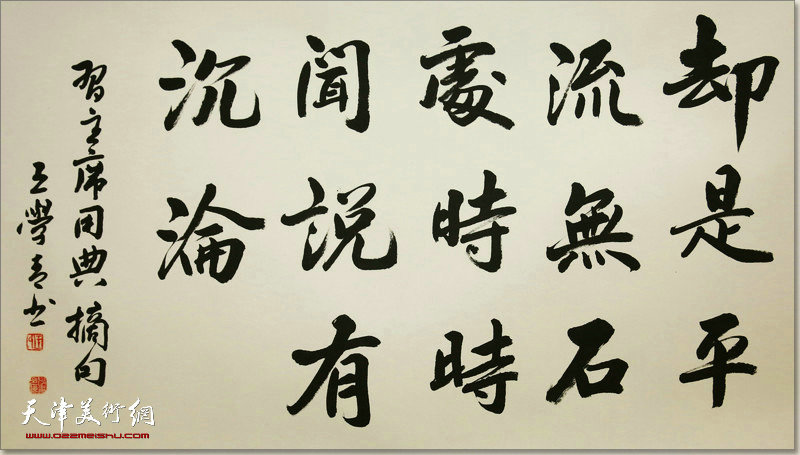 却是平
流無石
處時時
聞說有
沉淪
習主席用典摘句
王學書书
天津美術網
www.022meishu.com